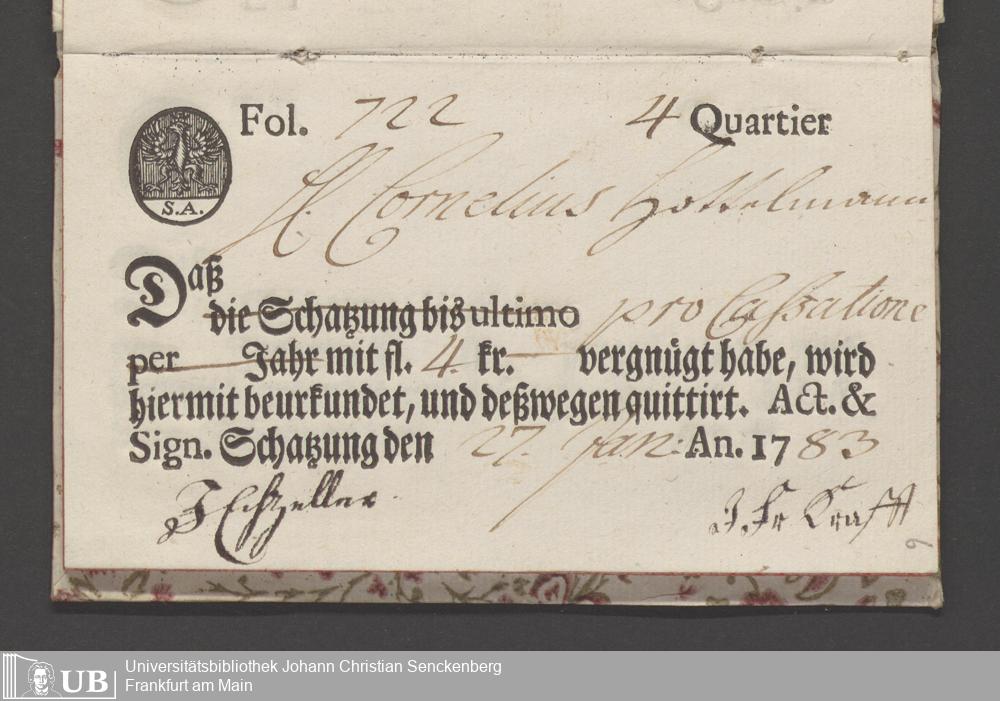 Fol. 722 4 Quartier
S.A.
H. Cornelius Hottelmann
Daß
die Schatzung bis ultimo pro Cassatione
per Jahr mit fl. 4. kr. vergnügt habe, wird
hiermit beurkundet, und deßwegen quittirt. Act. &
Sign. Schatzung den 27. Jan: An. 1783
J. Fr Krafft
6
UB
Universitätsbibliothek Johann Christian Senckenberg
Frankfurt am Main